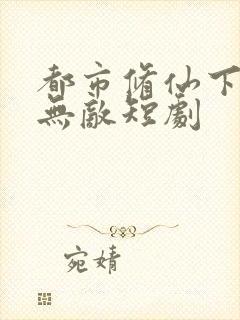 都市脩仙下
無敵短劇
宛婧